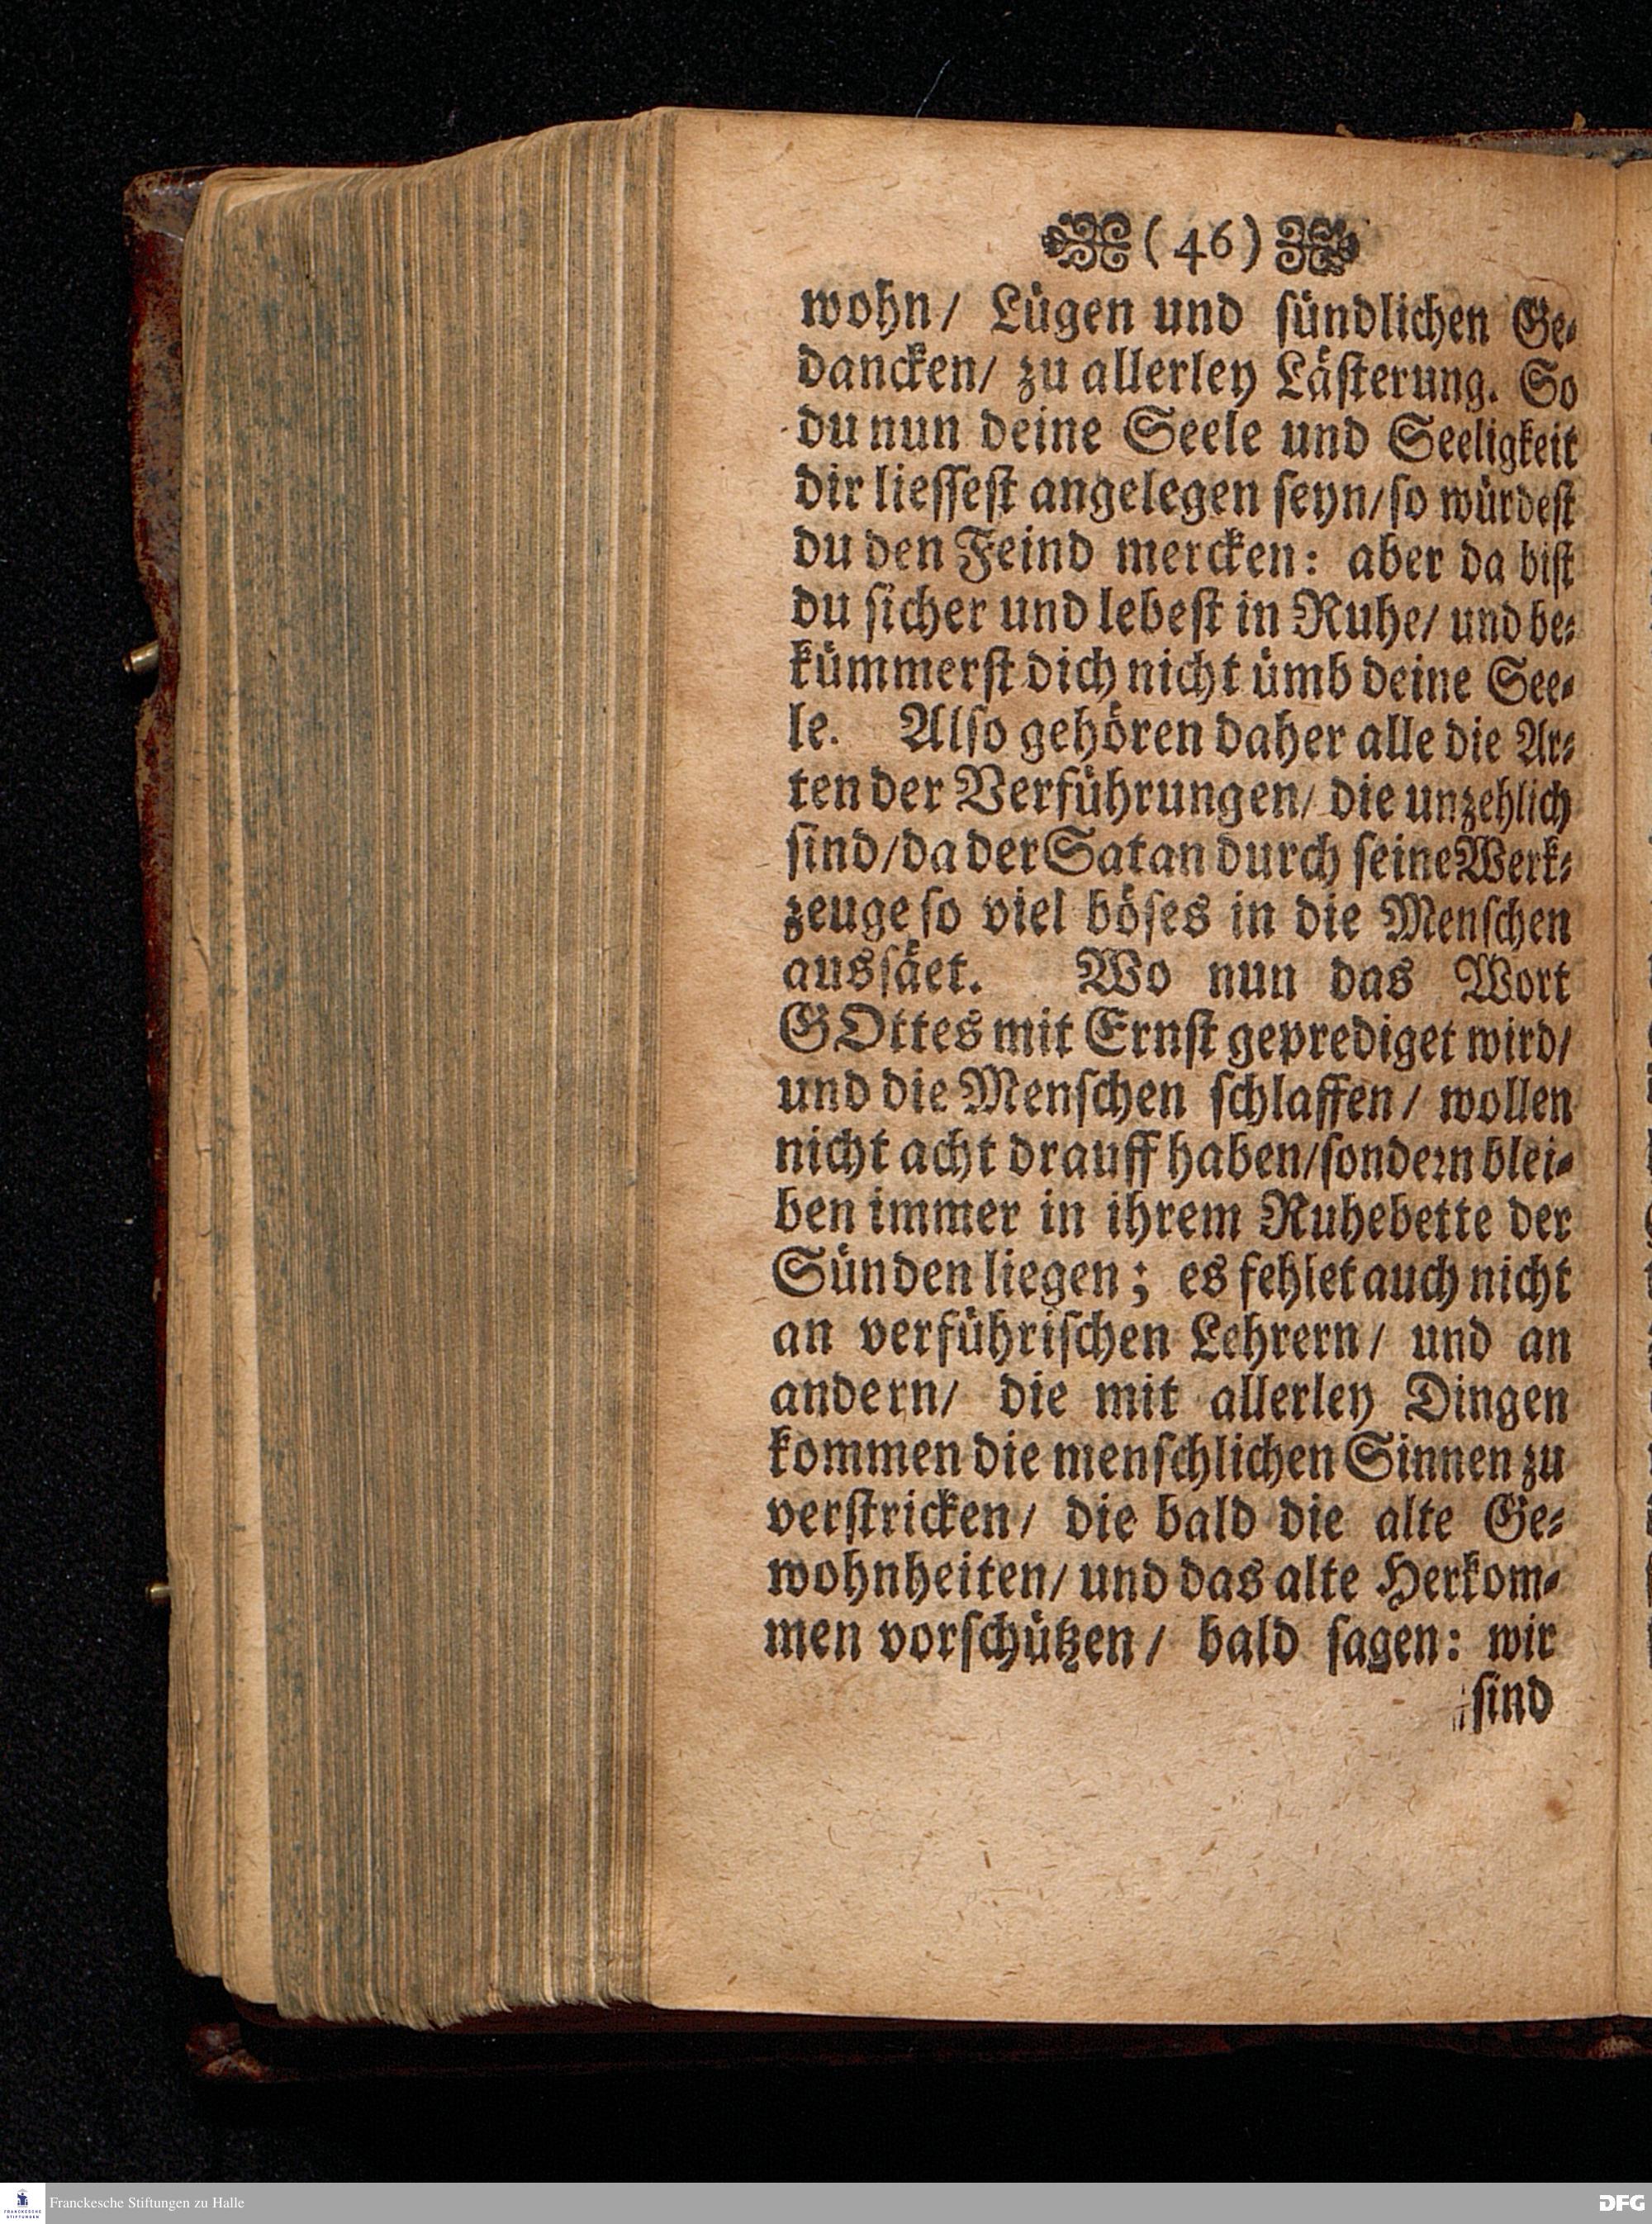 (46)
wohn/ Lügen und sündlichen Ge-
dancken/ zu allerley Lästerung. So
du nun deine Seele und Seeligkeit
dir liessest angelegen seyn/ so würdest
du den Feind mercken: aber da bist
du sicher und lebest in Ruhe/ und be-
kümmerst dich nicht ümb deine See-
le. Also gehören daher alle die Ar-
ten der Verführungen/ die unzehlich
sind/ da der Satan durch seine Werk-
zeuge so viel böses in die Menschen
aussäet. Wo nun das Wort
GOttes mit Ernst geprediget wird/
und die Menschen schlaffen/ wollen
nicht acht drauff haben/ sondern blei-
ben immer in ihrem Ruhebette der
Sünden liegen; es fehlet auch nicht
an verführischen Lehrern/ und an
andern/ die mit allerley Dingen
kommen die menschlichen Sinnen zu
verstricken/ die bald die alte Ge-
wohnheiten/ und das alte Herkom-
men vorschützen/ bald sagen: wir
sind
FRANCKESCHE
STIFTUNGEN
Franckesche Stiftungen zu Halle
DFG